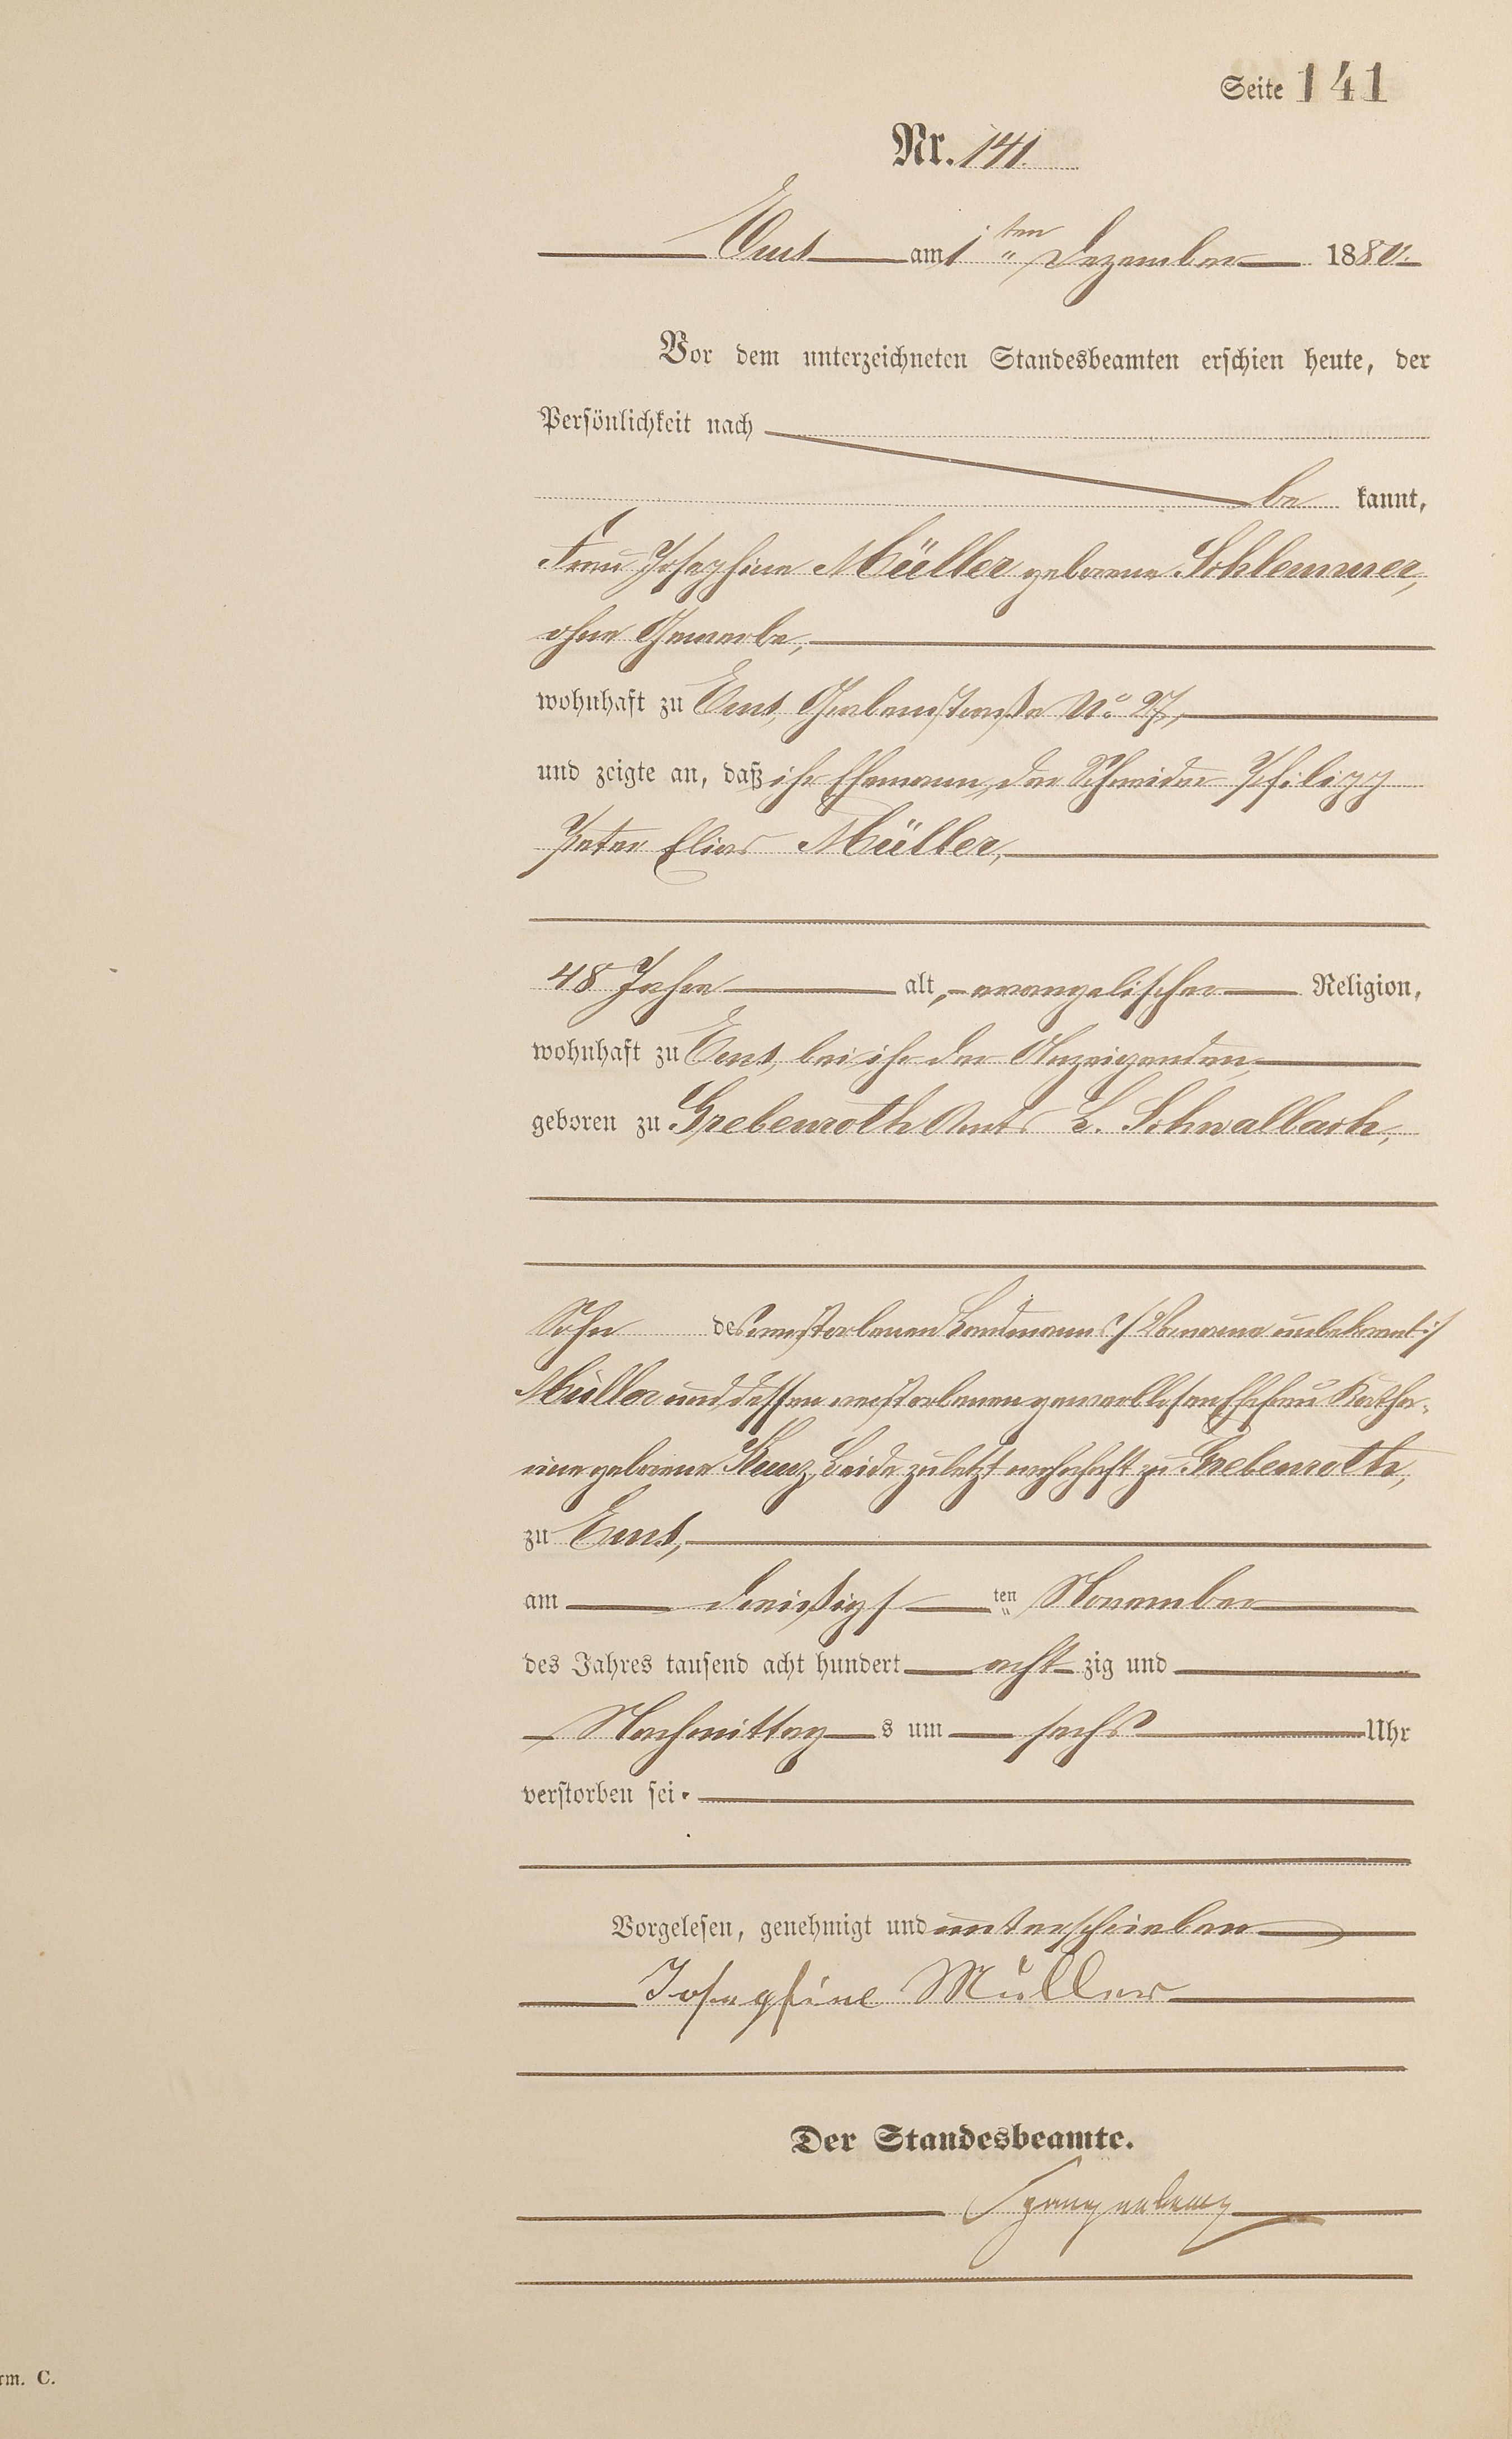 Seite 141
Nr. 141.
Ems am 1ten Dezember 1880.
Vor dem unterzeichneten Standesbeamten erschien heute, der
Persönlichkeit nach
be kannt,
Frau Josephine Müller geborene Schlemmer,
ohne Gewerbe,
wohnhaft zu Ems, Grabenstraße No 27,
und zeigte an, daß ihr Ehemann, der Schneider Philipp
Peter Elias Müller,
48 Jahre alt, evangelischer Religion,
wohnhaft zu Ems, bei ihr der Anzeigenden,
geboren zu Grebenroth Amts L. Schwalbach,
Sohn des verstorbenen Landmanns /: Vorname unbekannt :/
Müller und dessen verstorbenen gewerblosen Ehefrau Katha-
rina geborene Kunz, Beide zuletzt wohnhaft zu Grebenroth,
zu Ems,
am dreißigsten November
des Jahres tausend acht hundert acht zig und
Nachmittag s um sechs Uhr
verstorben sei.
Vorgelesen, genehmigt und unterschrieben
Josephine Müller
Der Standesbeamte.
Spangenberg
rm. C.